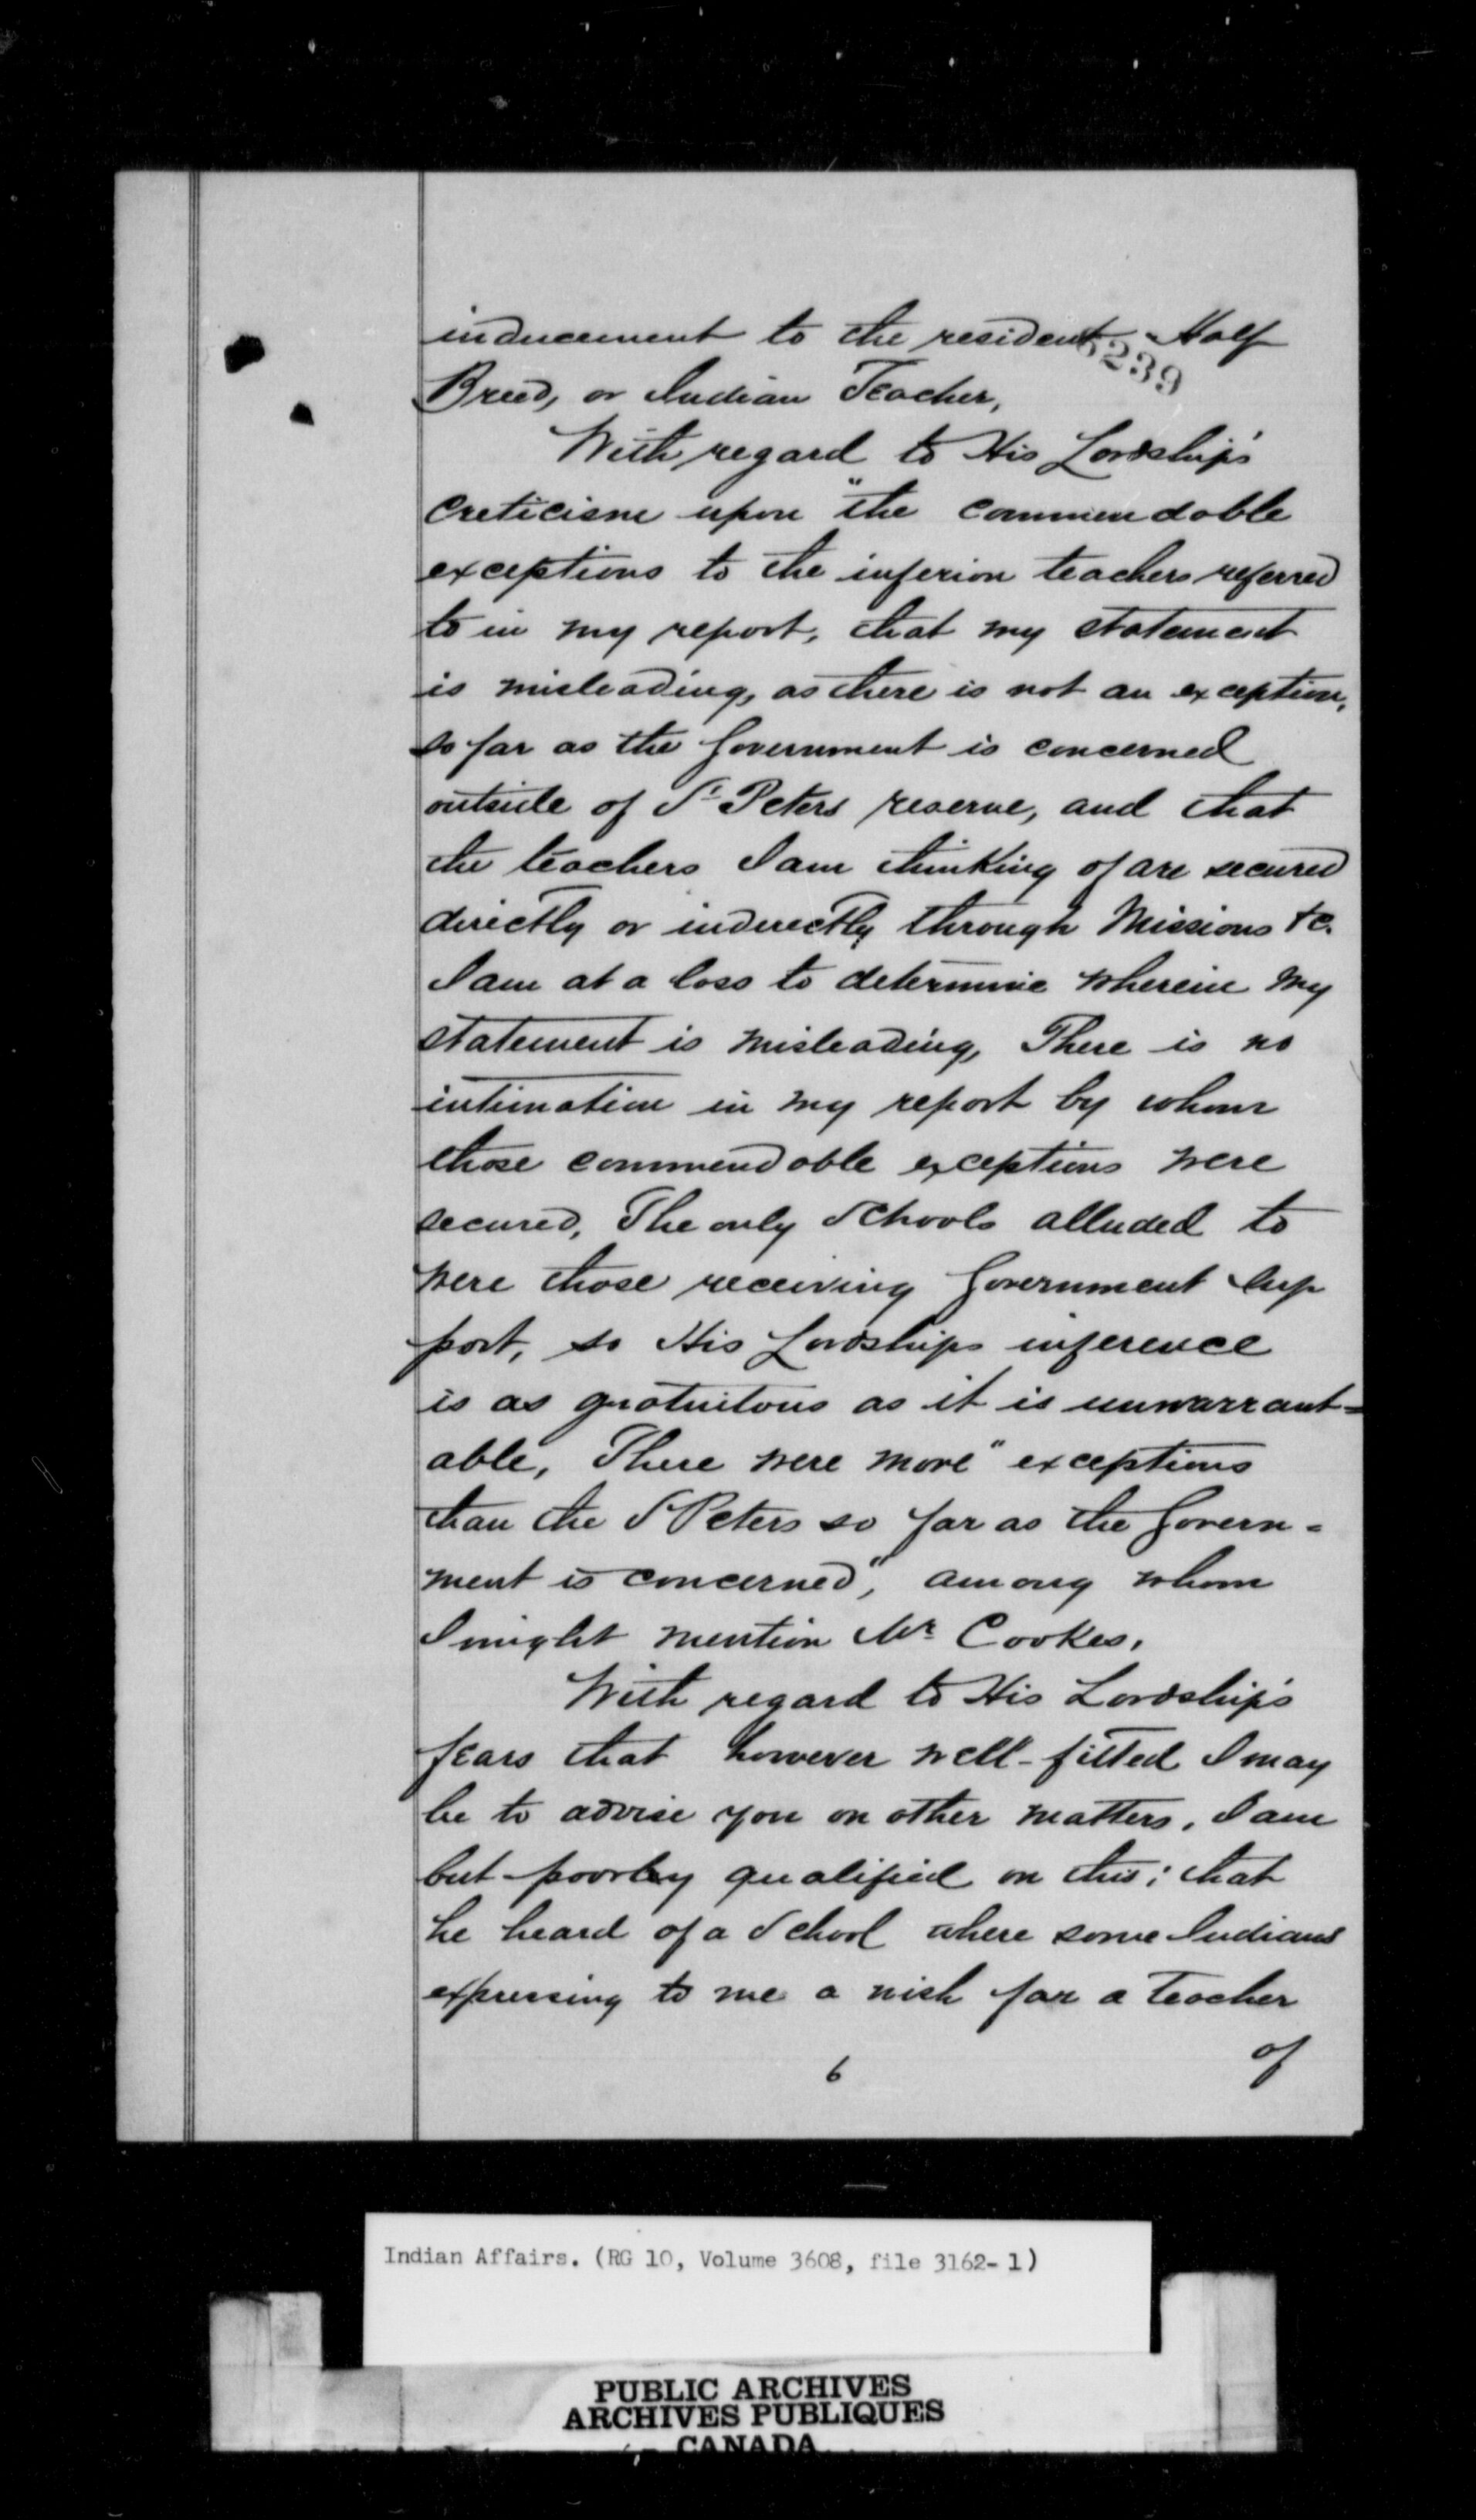 inducement to the resident Half
5239
Breed, or Indian Teacher,
With regard to His Lordship's
creticism upon "the commendable
exceptions to the inferior teachers referred
to in my report, that my statement
is misleading, as there is not an exception,
so far as the Government is concerned
outside of St Peters reserve, and that
the teachers I am thinking of are secured
directly or inderectly through Missions &c.
I am at a loss to determine wherein my
statement is misleading, There is no
intimation in my report by whom
those commendable exceptions were
secured, The only Schools alluded to
were those receiving Government Sup
port, so His Lordships inference
is as gratuitous as it is unwarrant=
able, There were more "exceptions
than the St Peters so far as the Govern=
ment is concerned", among whom
I might mention Mr Cookes,
With regard to His Lordship's
fears that however well-fitted I may
be to advise you on other matters, I am
but poorly qualified on this; that
he heard of a School where some Indians
expressing to me a wish for a teacher
6 of
Indian Affairs. (RG 10, Volume 3608, file 3162-1)
PUBLIC ARCHIVES
ARCHIVES PUBLIQUES
CANADA